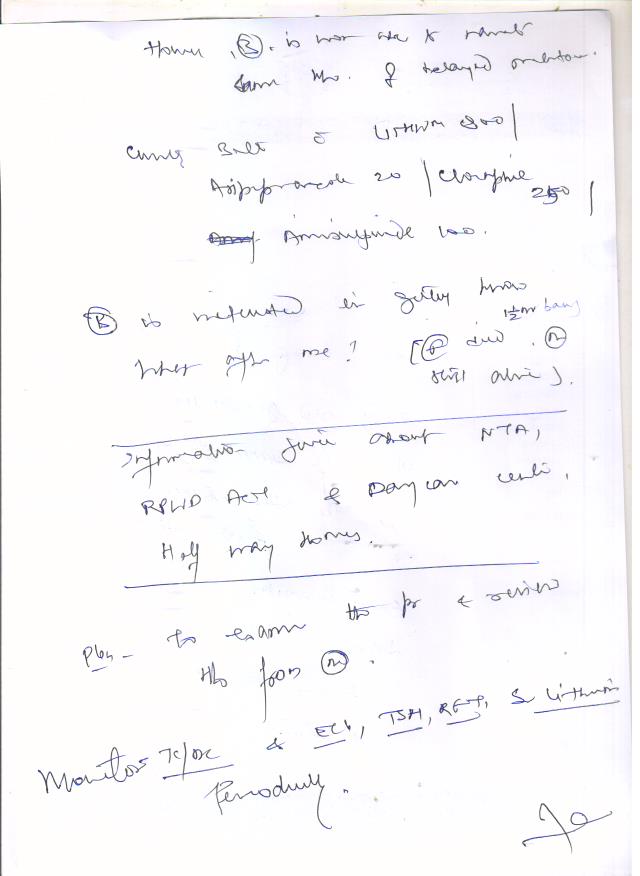 However, (B). is not able to
same H/o. of delayed
Currently Built c̄ Lithium 800 |
Aripiprazole 20 | Clozapine 250 |
Amisulpride 100.
(B) is interested in getting know
1½ yr back
What after me? [(F) died. (M)
still alive].
Information given about NTA,
RPWD Act & Day care centre,
Half way Homes.
Plan - to examine the pt & review
H/o from (M).
Monitor TC/DC & ECG, TSH, RFT, S. Lithium
Periodically.